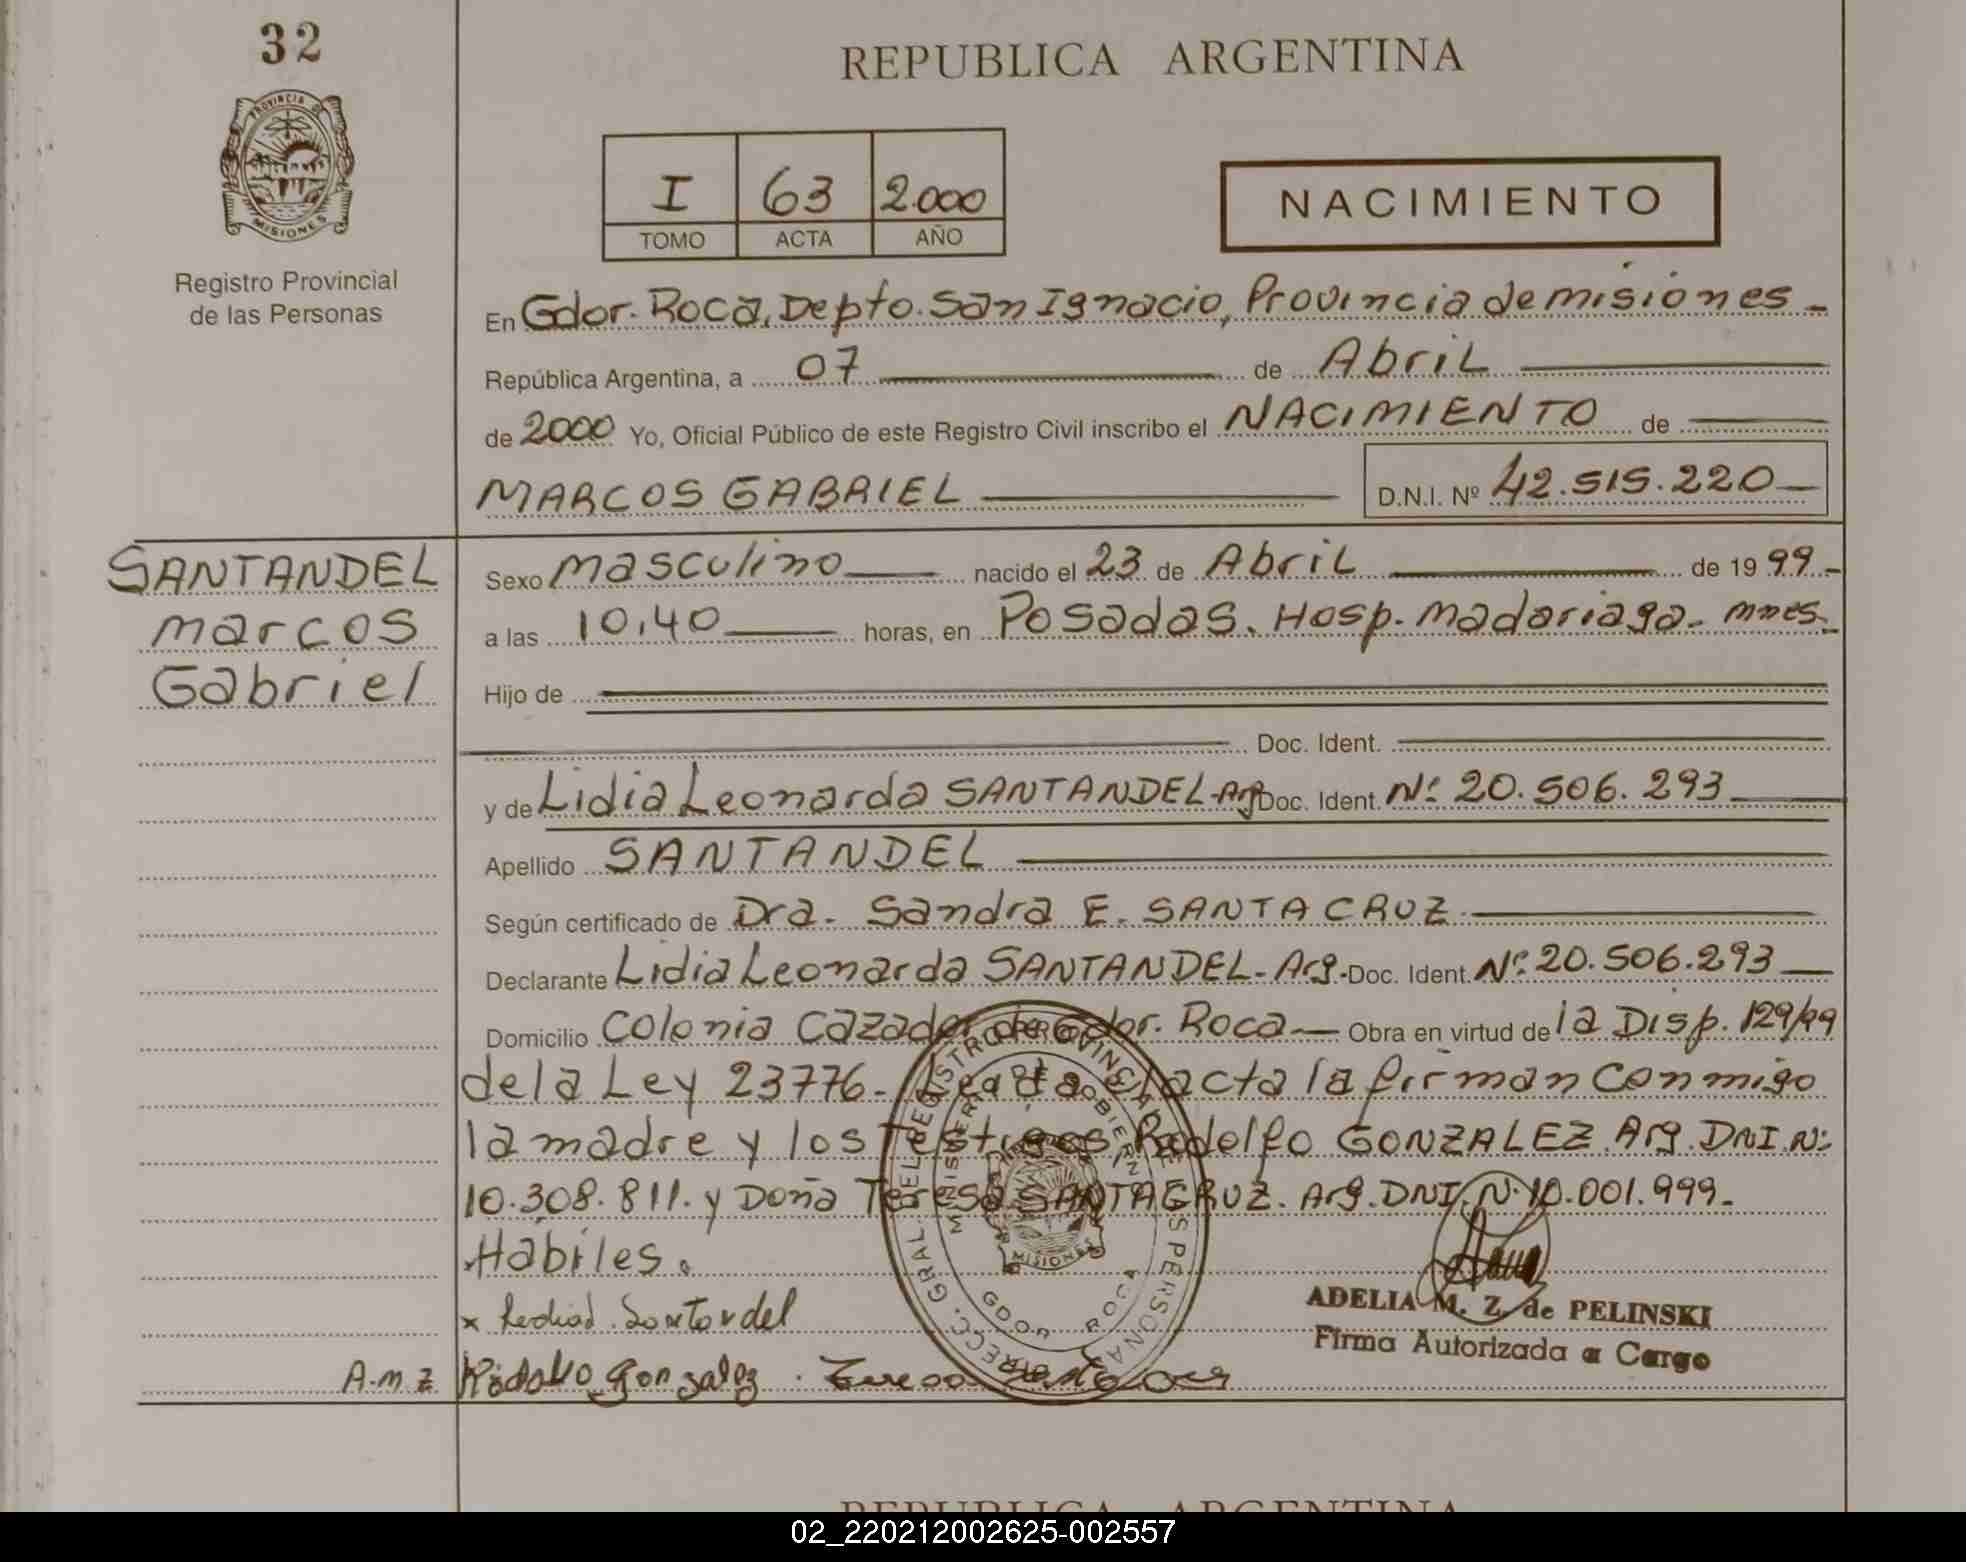 32
REPUBLICA ARGENTINA
PROVINCIA DE
MISIONES
Registro Provincial
de las Personas
I 63 2.000
TOMO ACTA AÑO
NACIMIENTO
En Gdor. Roca, Depto. San Ignacio, Provincia de misiones
República Argentina, a 07 de Abril
de 2000 Yo, Oficial Público de este Registro Civil inscribo el NACIMIENTO de
MARCOS GABRIEL D.N.I. Nº 42.515.220
SANTANDEL
marcos
Gabriel
Sexo masculino nacido el 23 de Abril de 1999
a las 10,40 horas, en Posadas. Hosp. Madariaga. mnes.
Hijo de
Doc. Ident.
y de Lidia Leonarda SANTANDEL-Arg Doc. Ident. Nº 20.506.293
Apellido SANTANDEL
Según certificado de Dra. Sandra E. SANTA CRUZ
Declarante Lidia Leonarda SANTANDEL-Arg. Doc. Ident. Nº 20.506.293
Domicilio Colonia Cazador de Gdor. Roca Obra en virtud de la Disp. 129/99
de la Ley 23776- Leida el acta la firman conmigo
la madre y los Testigos Rodolfo GONZALEZ. Arg. DNI. Nº
10.308.811. y Doña Teresa SANTACRUZ. Arg. DNI. Nº 10.001.999.
Hábiles.
x Santandel
A.M.Z Rodolfo Gonzalez
ADELIA M. Z. de PELINSKI
Firma Autorizada a Cargo
DIRECC. GRAL. DEL REGISTRO PROVINCIAL DE LAS PERSONAS
MINISTERIO DE GOBIERNO
MISIONES
GDOR. ROCA
REPUBLICA ARGENTINA
02_220212002625-002557